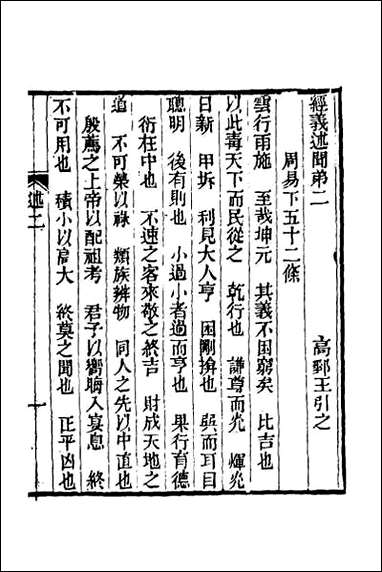 經義述聞弟二
高郵王引之
周易下五十二條
雲行雨施　至哉坤元　其義不困窮矣　比吉也
以此毒天下而民從之　乾行也　謙尊而光　煇光
日新　甲坼　利見大人亨　困剛揜也　巽而耳目
聰明　後有則也　小過小者過而亨也　果行育德
衍在中也　不速之客來敬之終吉　財成天地之
道　不可榮以祿　類族辨物　同人之先以中直也
殷薦之上帝以配祖考　君子以嚮晦入宴息　終
不可用也　積小以高大　終莫之聞也　正乎凶也
述二
一